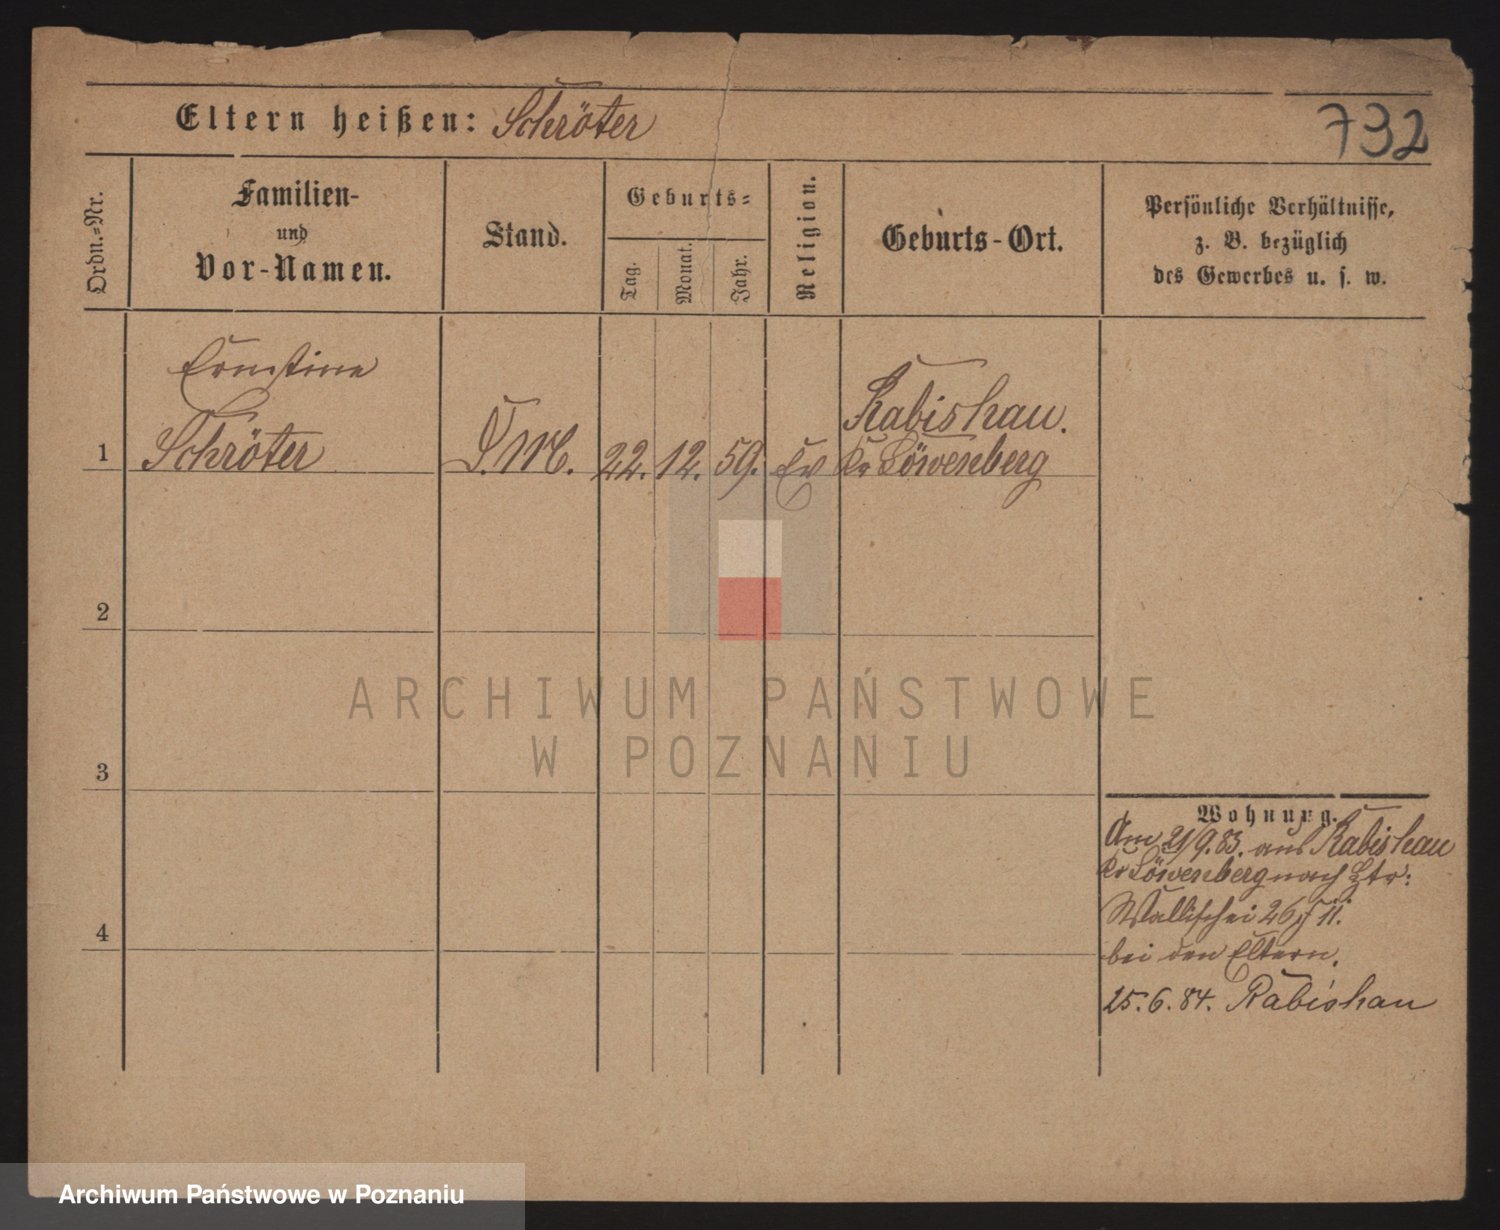 Eltern heißen: Schröter
732
Ordn.-Nr.
Familien-
und
Vor-Namen.
Stand.
Geburts-
Tag.
Monat.
Jahr.
Religion.
Geburts-Ort.
Persönliche Verhältnisse,
z. B. bezüglich
des Gewerbes u. s. w.
Ernstine
Schröter
1
22. 12. 59. Ev
Rabishau.
Kr Löwenberg
2
3
4
Wohnung.
Am 21/9. 83. aus Rabishau
Kr Löwenberg nach
Wallischei 26
bei den Eltern.
25. 6. 84. Rabishau
ARCHIWUM PAŃSTWOWE
W POZNANIU
Archiwum Państwowe w Poznaniu